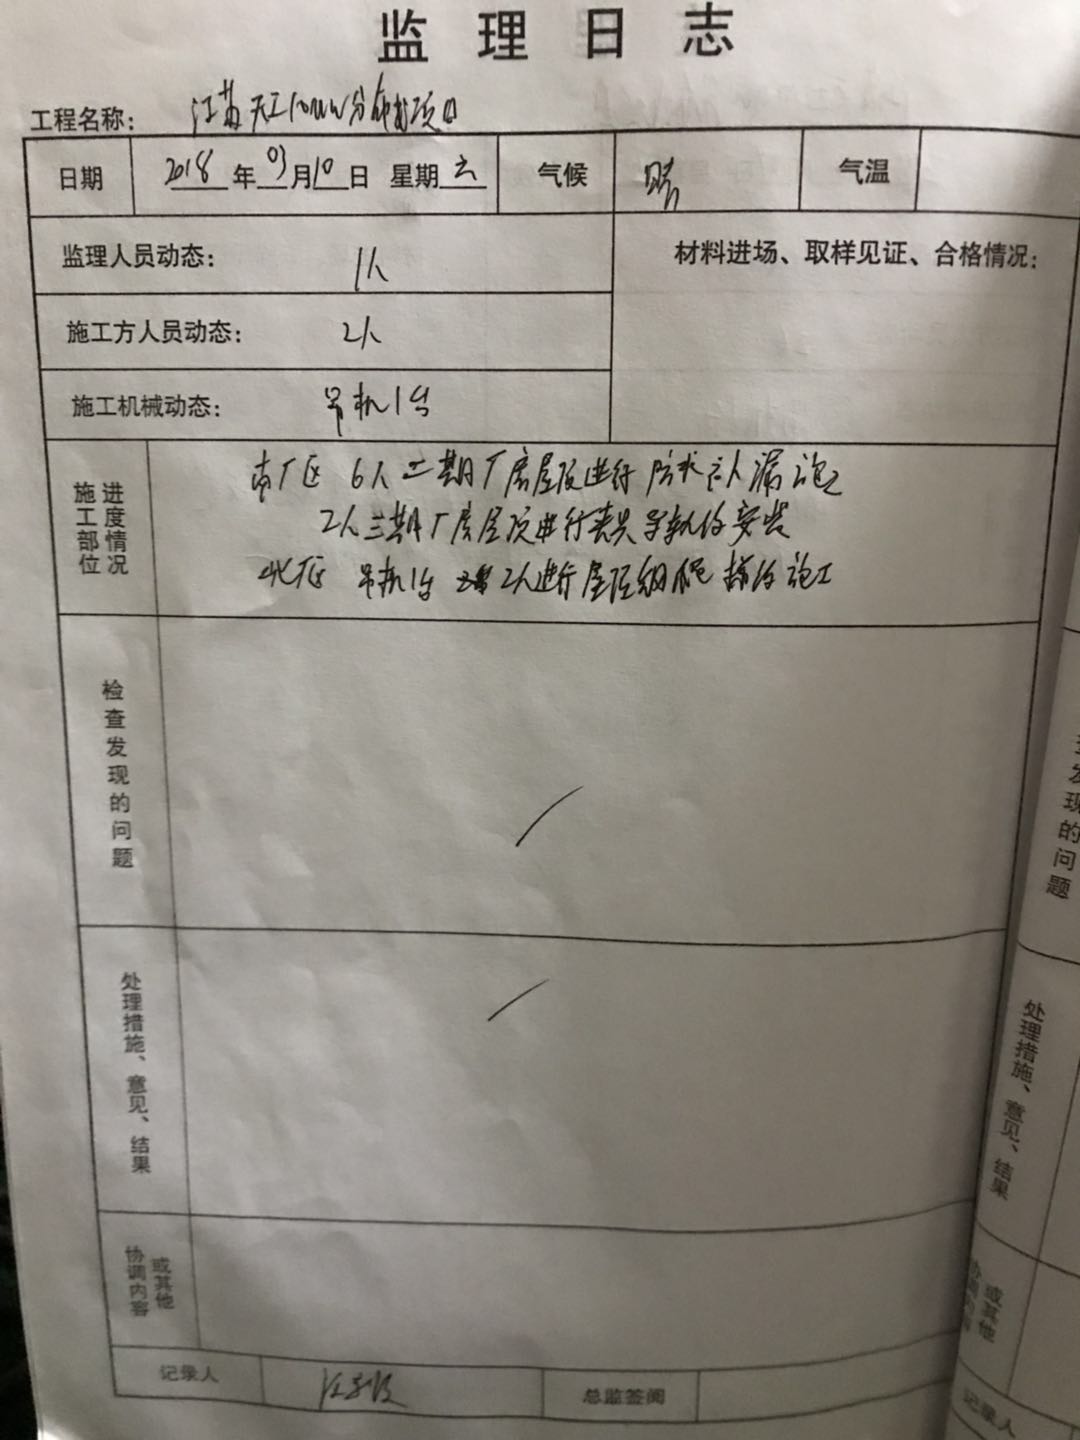 监理日志
工程名称: 江苏天工10MW分布式项目
日期 2018年03月10日 星期六 气候 晴 气温
监理人员动态: 1人 材料进场、取样见证、合格情况:
施工方人员动态: 2人
施工机械动态: 吊机1台
施工部位进度情况
南厂区 6人 二期厂房屋顶进行防水
2人三期厂房屋顶进行夹具导轨的安装
北厂区 吊机1台 2人进行屋顶的施工
检查发现的问题
处理措施、意见、结果
协调内容或其他
记录人 总监签阅
发现的问题
处理措施、意见、结果
或其他
记录人